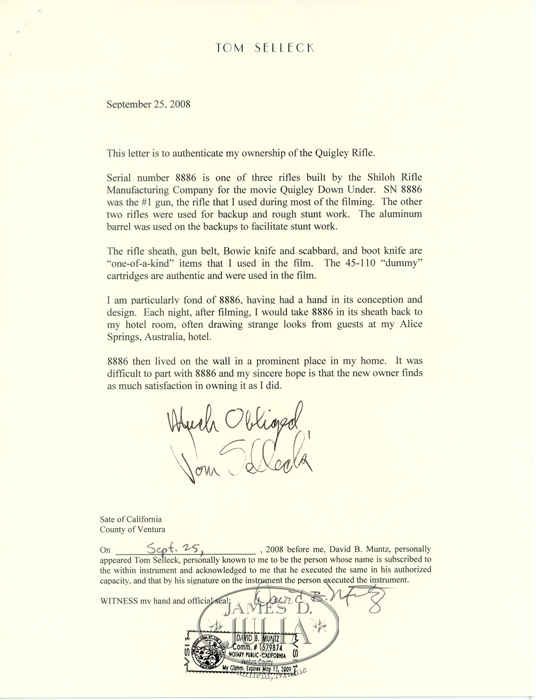 TOM SELLECK
September 25, 2008
This letter is to authenticate my ownership of the Quigley Rifle.
Serial number 8886 is one of three rifles built by the Shiloh Rifle
Manufacturing Company for the movie Quigley Down Under. SN 8886
was the #1 gun, the rifle that I used during most of the filming. The other
two rifles were used for backup and rough stunt work. The aluminum
barrel was used on the backups to facilitate stunt work.
The rifle sheath, gun belt, Bowie knife and scabbard, and boot knife are
“one-of-a-kind” items that I used in the film. The 45-110 “dummy”
cartridges are authentic and were used in the film.
I am particularly fond of 8886, having had a hand in its conception and
design. Each night, after filming, I would take 8886 in its sheath back to
my hotel room, often drawing strange looks from guests at my Alice
Springs, Australia, hotel.
8886 then lived on the wall in a prominent place in my home. It was
difficult to part with 8886 and my sincere hope is that the new owner finds
as much satisfaction in owning it as I did.
Much Obliged
Tom Selleck
Sate of California
County of Ventura
On Sept. 25, , 2008 before me, David B. Muntz, personally
appeared Tom Selleck, personally known to me to be the person whose name is subscribed to
the within instrument and acknowledged to me that he executed the same in his authorized
capacity, and that by his signature on the instrument the person executed the instrument.
WITNESS my hand and official seal: David B. Muntz
JAMES D.
JULIA
DAVID B. MUNTZ
Comm. # 1579874
NOTARY PUBLIC - CALIFORNIA
Ventura County
My Comm. Expires May 17, 2009